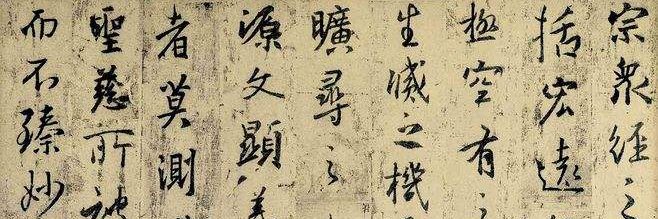 宗眾經之
括宏遠
極空有之
生滅之機
曠尋之
源文顯義
者莫測
聖慈所被
而不臻妙